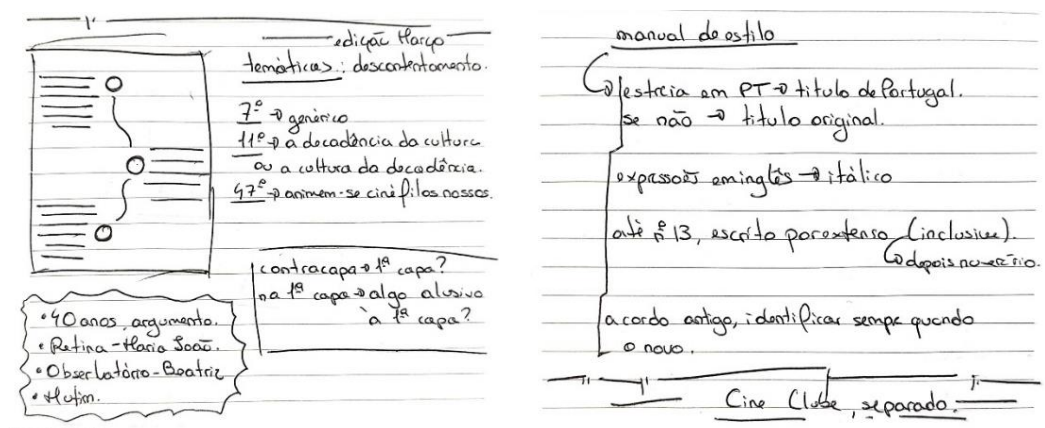 edição Março
temáticas: descontentamento.
7º → genérico
11º → a decadência da cultura
ou a cultura da decadência.
47º → animem-se cinéfilos nossos.
contracapa → 1ª capa?
na 1ª capa → algo alusivo
à 1ª capa?
• 40 anos, argumento.
• Retina - Maria João.
• Observatório - Beatriz
• Motim.
manual de estilo
estreia em PT → titulo de Portugal.
se não → titulo original.
expressões em inglês → itálico
até nº 13, escrito por extenso (inclusive).
depois numerário.
acordo antigo, identificar sempre quando
o novo.
Cine Clube, separado.